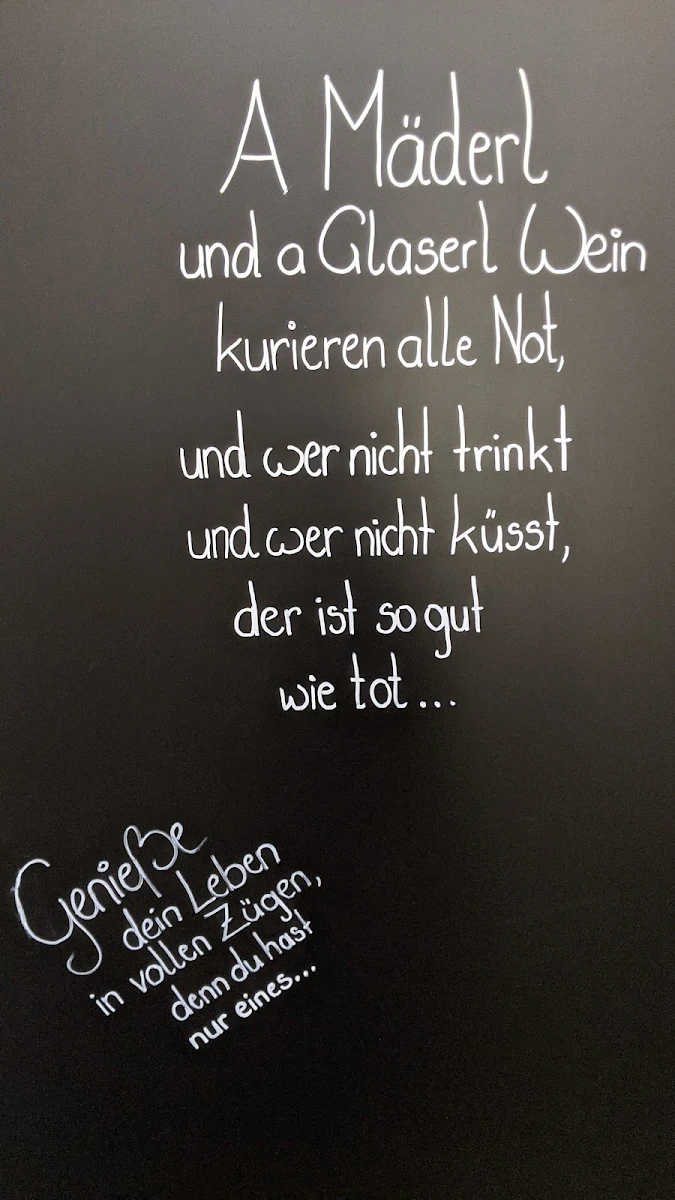 A Mäderl
und a Glaserl Wein
kurieren alle Not,
und wer nicht trinkt
und wer nicht küsst,
der ist so gut
wie tot...
Genieße
dein Leben
in vollen Zügen,
denn du hast
nur eines...